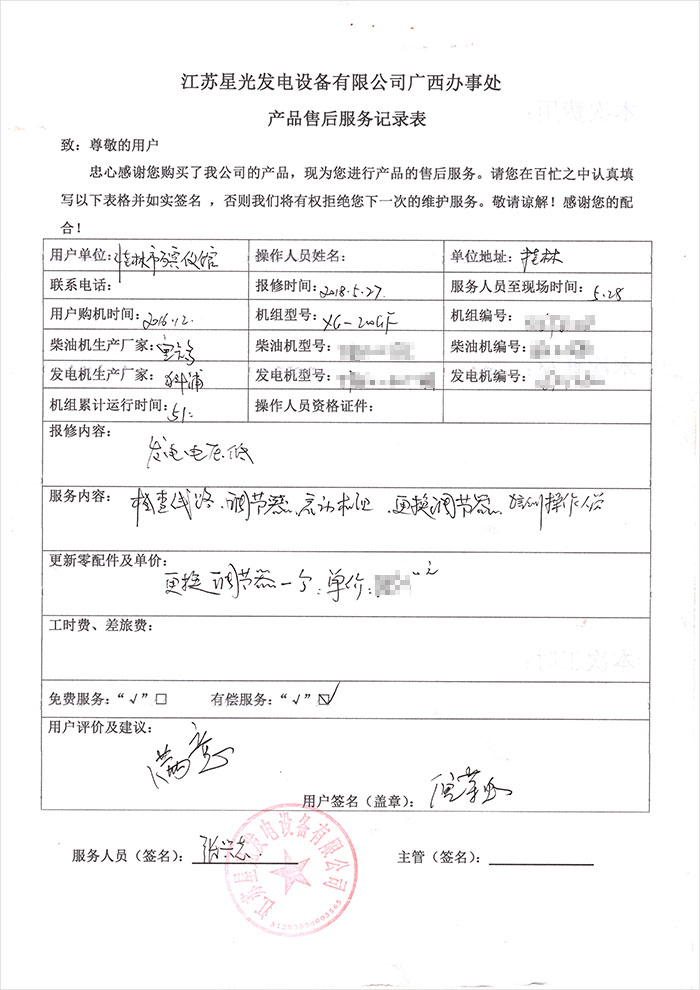 江苏星光发电设备有限公司广西办事处
产品售后服务记录表
致：尊敬的用户
忠心感谢您购买了我公司的产品，现为您进行产品的售后服务。请您在百忙之中认真填
写以下表格并如实签名 ，否则我们将有权拒绝您下一次的维护服务。敬请谅解！感谢您的配
合！
用户单位：桂林市殡仪馆 操作人员姓名： 单位地址：桂林
联系电话： 报修时间：2018.5.27. 服务人员至现场时间：5.28
用户购机时间：2016.12. 机组型号：XG-200GF 机组编号：
柴油机生产厂家： 柴油机型号： 柴油机编号：
发电机生产厂家：科浦 发电机型号： 发电机编号：
机组累计运行时间：51. 操作人员资格证件：
报修内容：
发电电压低
服务内容：检查线路、调节器、启动机组、更换调节器、培训操作人员
更新零配件及单价：
更换调节器一个；单价： 元
工时费、差旅费：
免费服务：“√”□ 有偿服务：“√”☑
用户评价及建议：
满意
用户签名（盖章）：
服务人员（签名）：张兴志 主管（签名）：
江苏星光发电设备有限公司